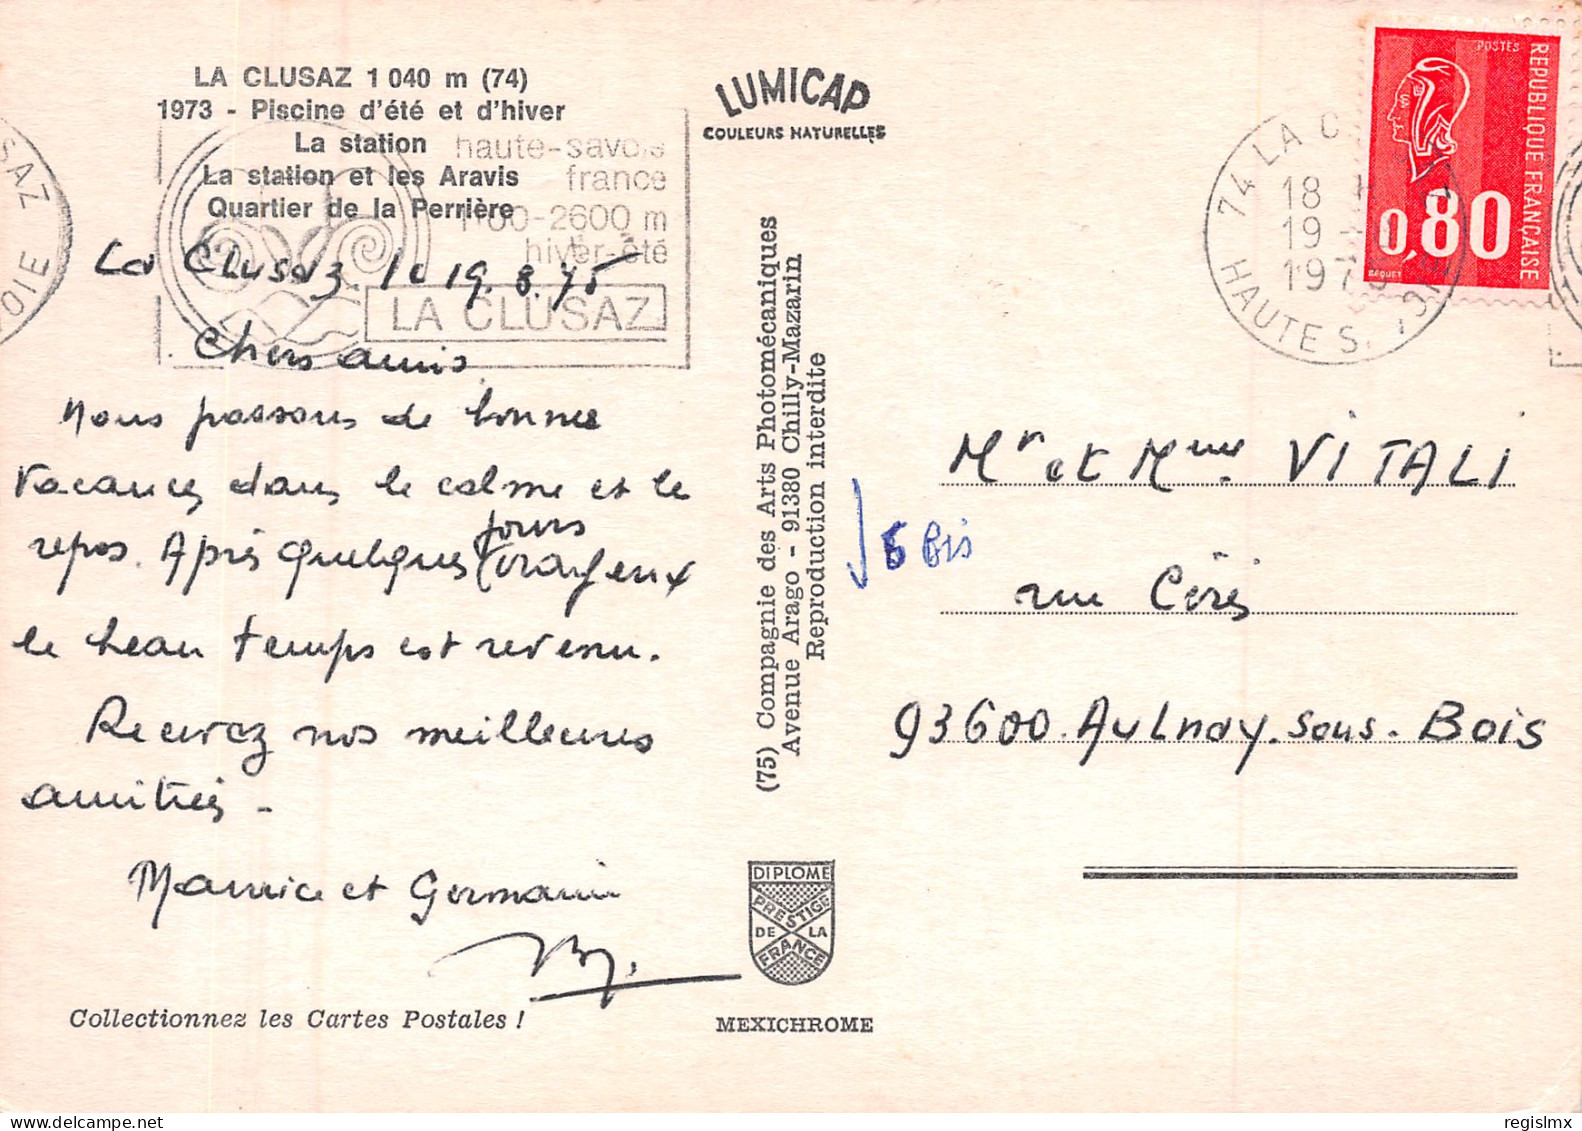 LA CLUSAZ 1 040 m (74)
1973 - Piscine d'été et d'hiver
La station
La station et les Aravis
Quartier de la Perrière
haute-savoie
france
1100-2600 m
hiver-été
LA CLUSAZ
La Clusaz le 19.8.75
Chers amis
Nous passons de bonnes
vacances dans le calme et le
repos. Après quelques jours orageux
le beau temps est revenu.
Recevez nos meilleures
amitiés -
Maurice et Germaine
Collectionnez les Cartes Postales !
LUMICAP
COULEURS NATURELLES
(75) Compagnie des Arts Photomécaniques
Avenue Arago - 91380 Chilly-Mazarin
Reproduction interdite
DIPLOME
PRESTIGE
DE LA
FRANCE
MEXICHROME
POSTES
REPUBLIQUE FRANÇAISE
0,80
BEQUET
74 LA C
18 H
19 -
197
HAUTE S.
SAZ
OIE
Mr et Mme VITALI
6 bis
rue Cérès
93600 Aulnay-sous-Bois
regislmx